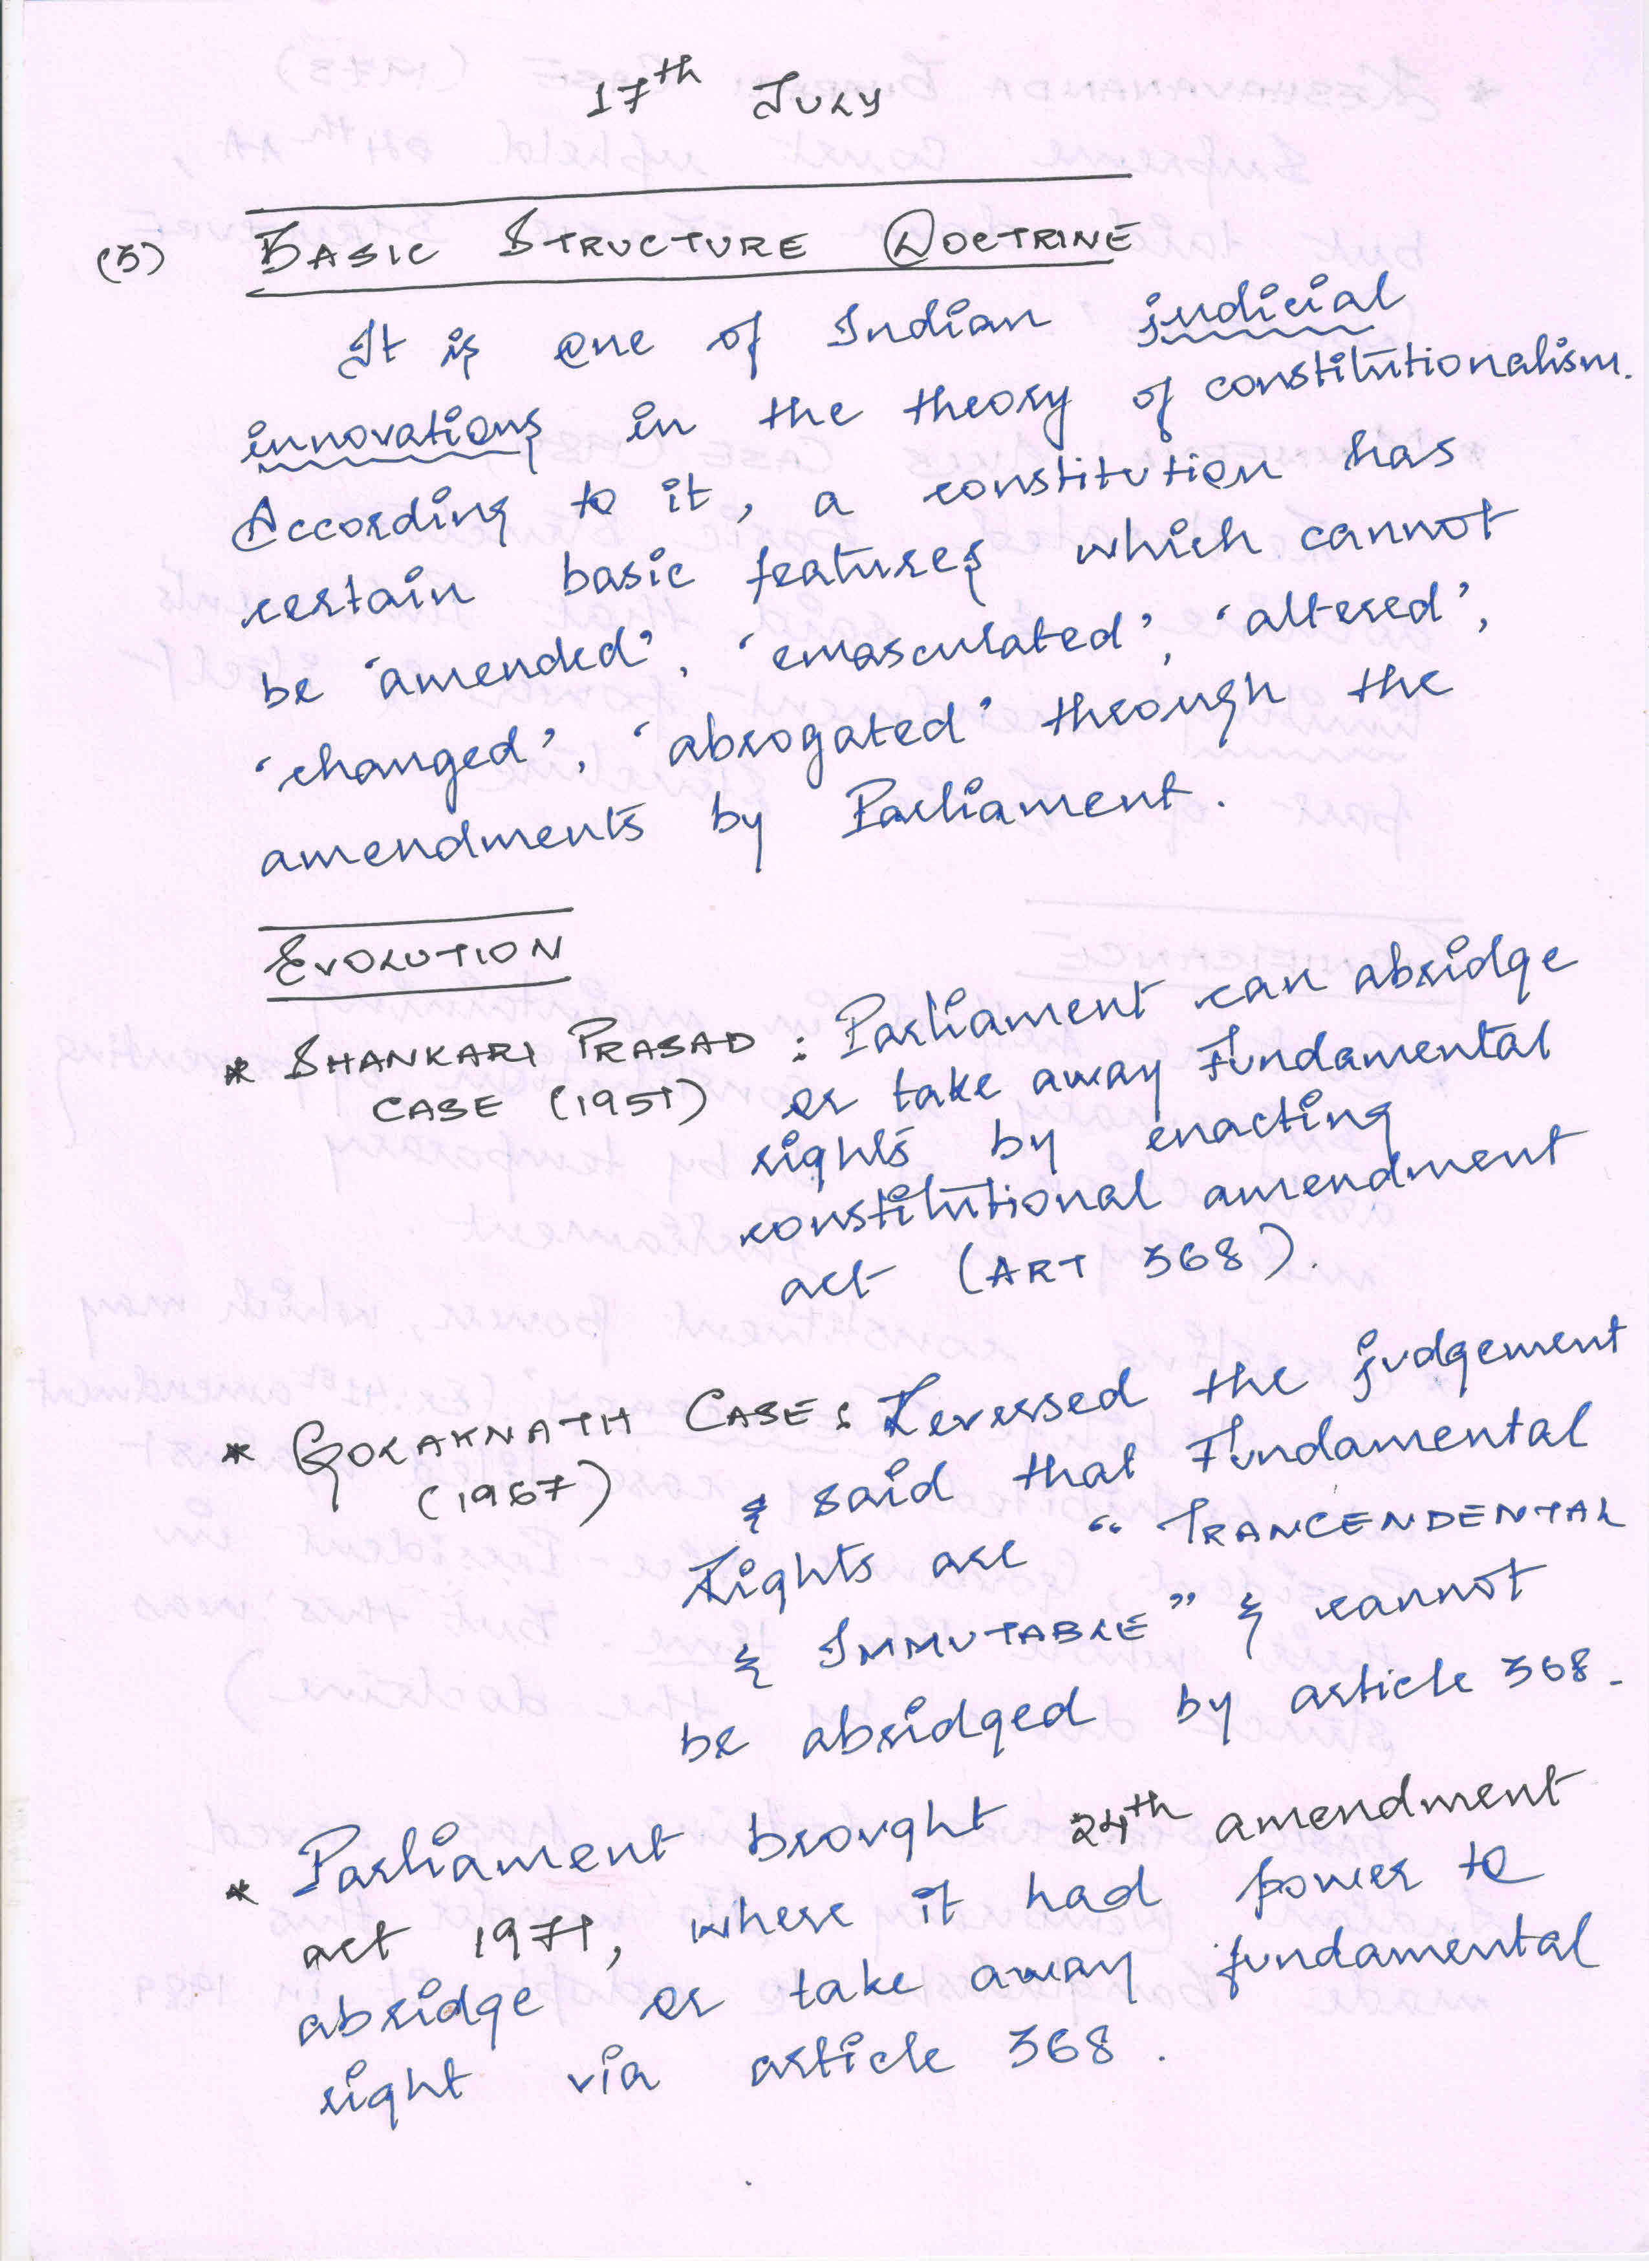 17th July
(5) BASIC STRUCTURE DOCTRINE
It is one of Indian judicial
innovations in the theory of constitutionalism.
According to it, a constitution has
certain basic features which cannot
be 'amended', 'emasculated', 'altered',
'changed', 'abrogated' through the
amendments by Parliament.
EVOLUTION
* SHANKARI PRASAD : Parliament can abridge
CASE (1951) or take away Fundamental
rights by enacting
constitutional amendment
act (ART 368).
* GOLAKNATH CASE : Reversed the judgement
(1967) & said that Fundamental
Rights are "TRANCENDENTAL
& IMMUTABLE" & cannot
be abridged by article 368.
* Parliament brought 24th amendment
act 1971, where it had power to
abridge or take away fundamental
right via article 368.